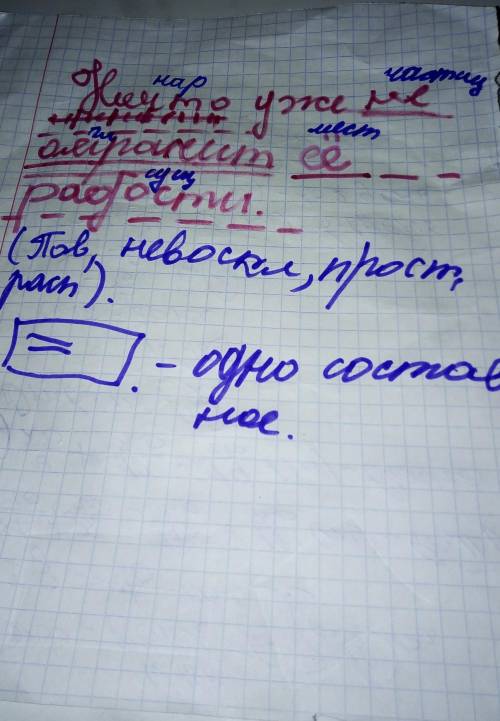 нар частиц
Ничто уже не
гл мест
омрачит её
сущ
радости.
(Пов, невоскл, прост,
расп).
— одно состав
ное.